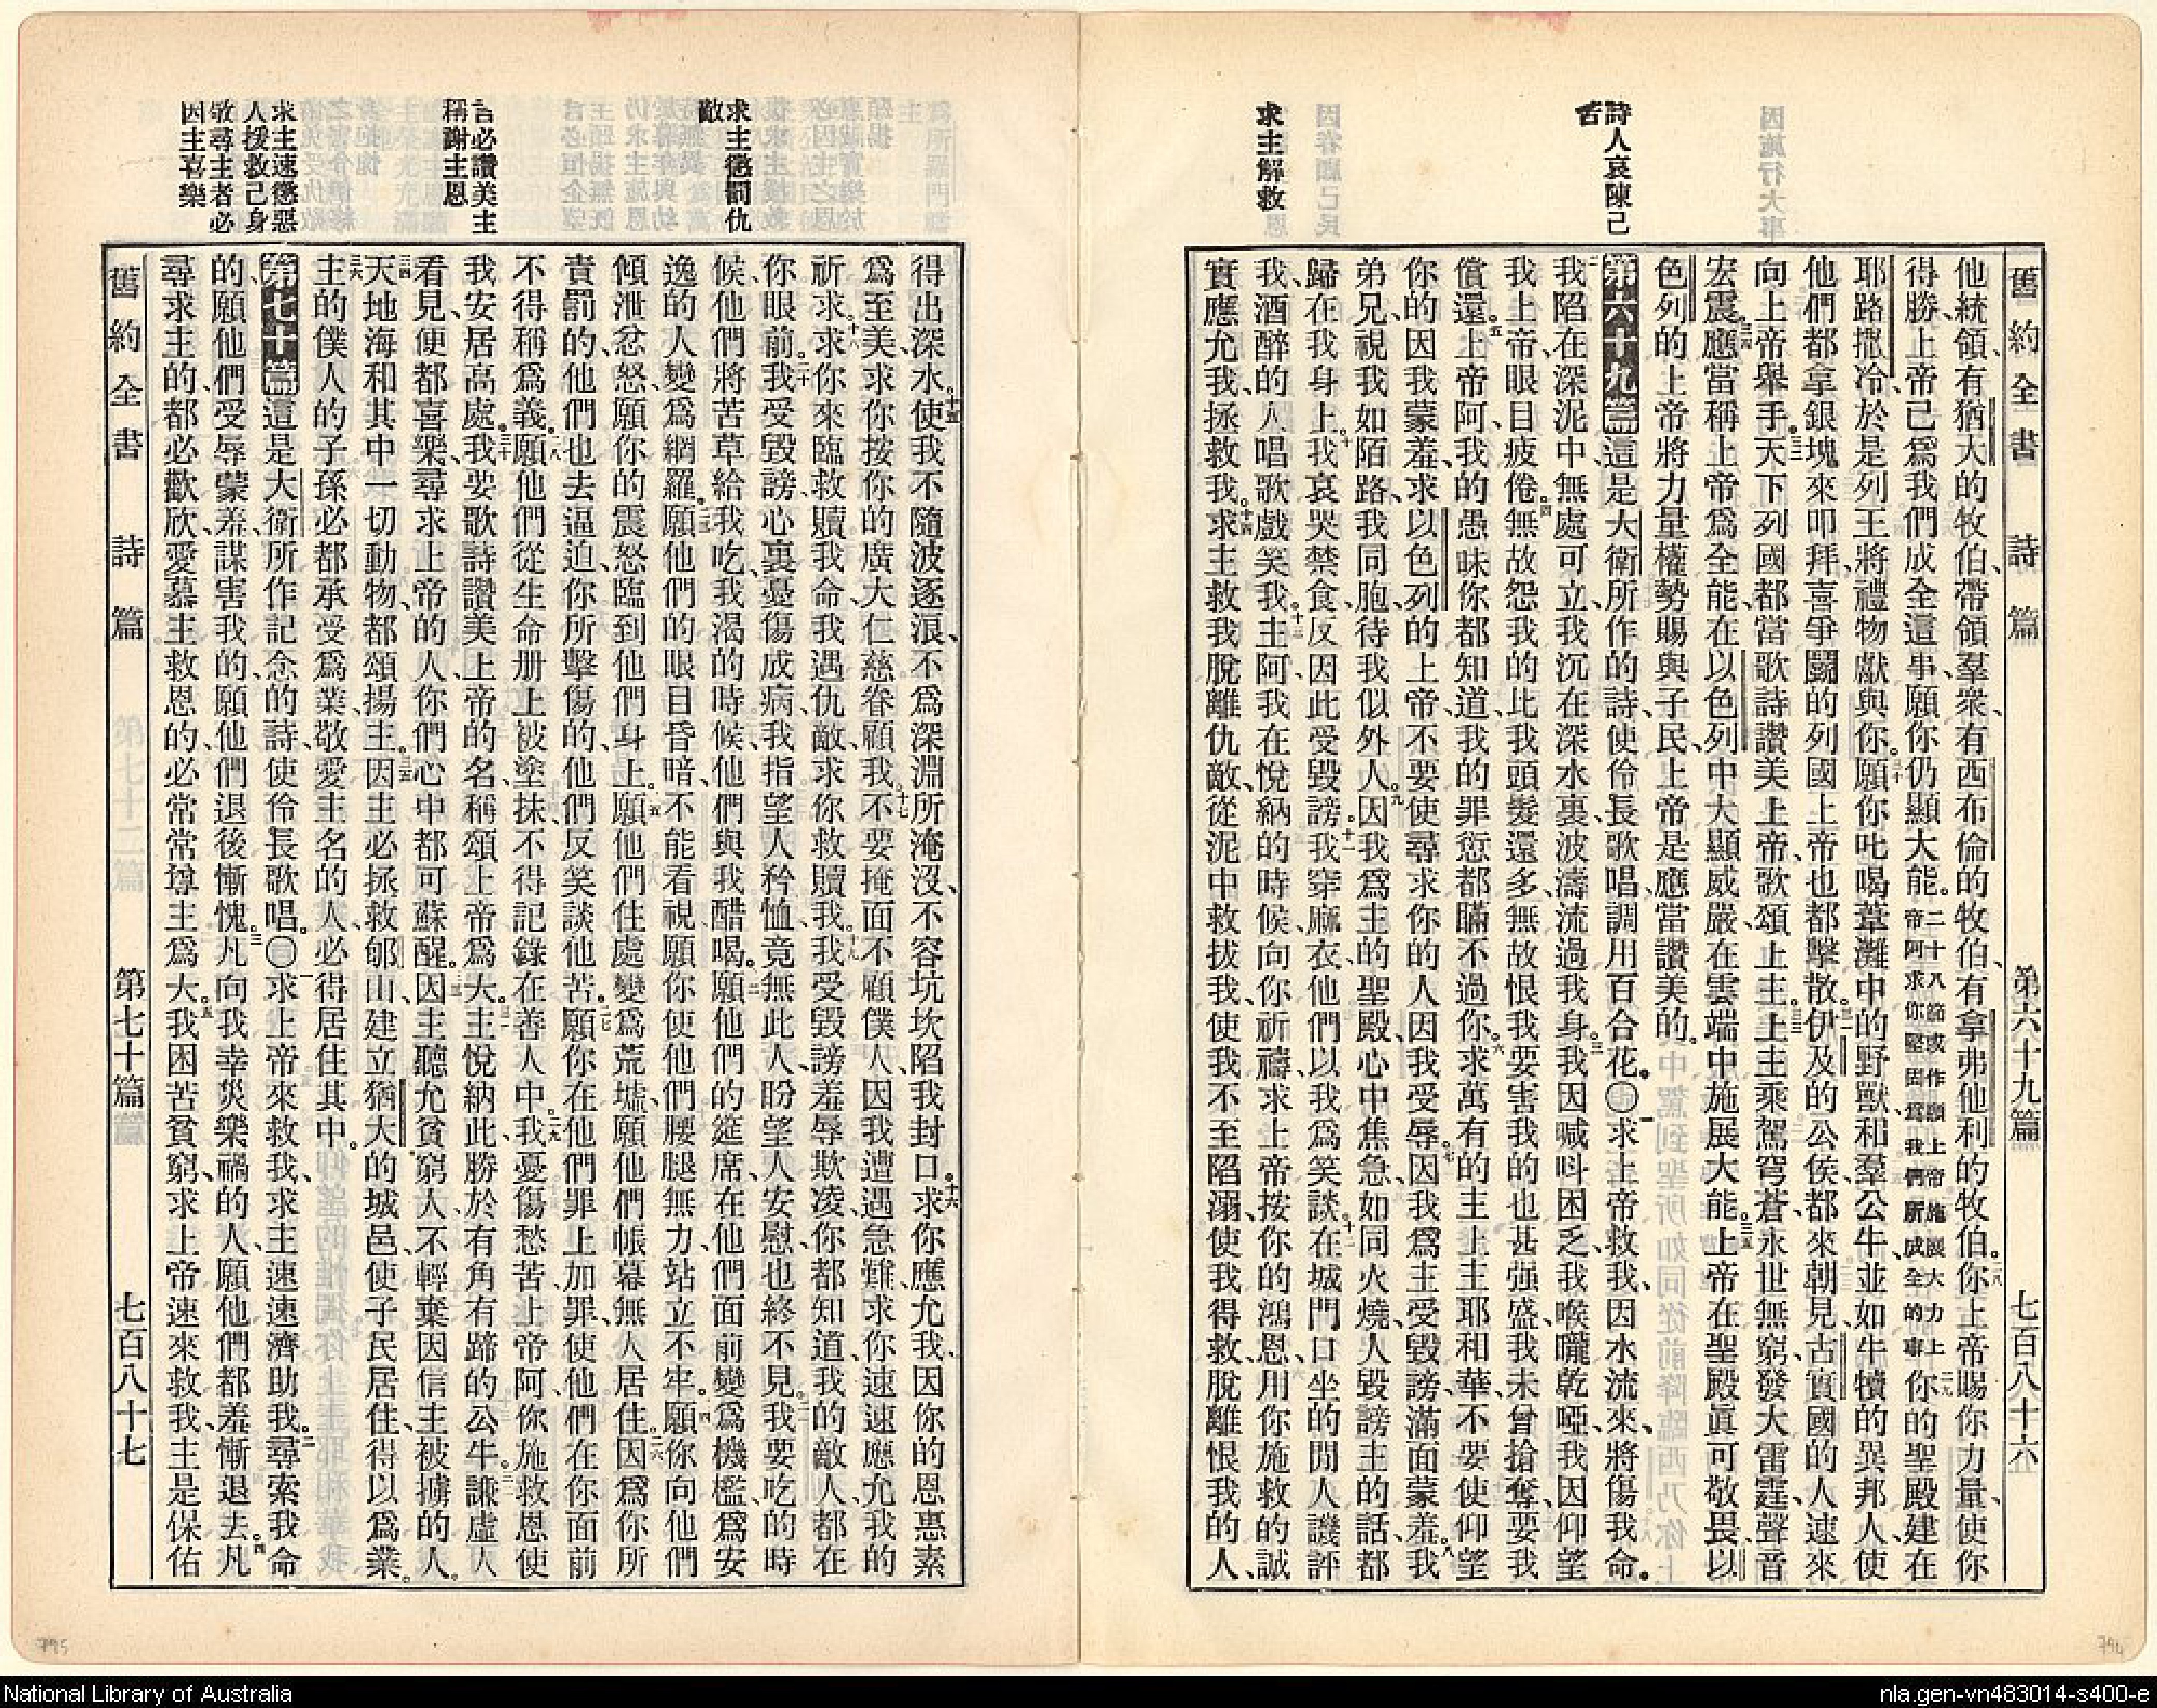 因施行大事
詩人哀陳己
苦
因眷顧己民
求主解救
舊約全書 詩篇 第六十九篇 七百八十六
他統領、有猶大的牧伯、帶領羣衆、有西布倫的牧伯、有拿弗他利的牧伯。二八你上帝賜你力量、使你
得勝、上帝已爲我們成全這事、願你仍顯大能。二十八節或作願上帝施展大力上帝阿求你堅固爲我們所成全的事二九你的聖殿建在
耶路撒冷、於是列王將禮物獻與你。三十願你叱喝葦灘中的野獸、和羣公牛、並如牛犢的異邦人、使
他們都拿銀塊來叩拜、喜爭鬭的列國、上帝也都擊散。三一伊及的公侯、都來朝見、古實國的人、速來
向上帝舉手。三二天下列國、都當歌詩讚美上帝、歌頌上主。三三上主乘駕穹蒼、永世無窮、發大雷霆聲音
宏震。三四應當稱上帝爲全能、在以色列中大顯威嚴、在雲端中施展大能。三五上帝在聖殿眞可敬畏、以
色列的上帝將力量權勢賜與子民、上帝是應當讚美的。
第六十九篇這是大衛所作的詩、使伶長歌唱、調用百合花。〇一求上帝救我、因水流來、將傷我命。
二我陷在深泥中、無處可立、我沉在深水裏、波濤流過我身。三我因喊呌困乏、我喉嚨乾啞、我因仰望
我上帝、眼目疲倦。四無故怨我的、比我頭髮還多、無故恨我、要害我的、也甚强盛、我未曾搶奪、要我
償還。五上帝阿、我的愚昧、你都知道、我的罪愆、都瞞不過你。六求萬有的主上主耶和華、不要使仰望
你的、因我蒙羞、求以色列的上帝、不要使尋求你的人、因我受辱。七因我爲主受毀謗、滿面蒙羞。八我
弟兄視我如陌路、我同胞、待我似外人。九因我爲主的聖殿、心中焦急、如同火燒、人毀謗主的話、都
歸在我身上。十我哀哭禁食、反因此受毀謗。十一我穿麻衣、他們以我爲笑談。十二在城門口坐的閒人譏評
我、酒醉的人、唱歌戲笑我。十三主阿、我在悅納的時候、向你祈禱、求上帝按你的鴻恩、用你施救的誠
實、應允我、拯救我。十四求主救我脫離仇敵、從泥中救拔我、使我不至陷溺、使我得救、脫離恨我的人、
求主懲罰仇
敵
言必讚美主
稱謝主恩
求主速懲惡
人援救己身
敬尋主者必
因主喜樂
得出深水。十五使我不隨波逐浪、不爲深淵所淹沒、不容坑坎陷我封口。十六求你應允我、因你的恩惠素
爲至美、求你按你的廣大仁慈、眷顧我。十七不要掩面不顧僕人、因我遭遇急難、求你速速應允我的
祈求。十八求你來臨救贖我命、我遇仇敵、求你救贖我。十九我受毀謗羞辱欺凌、你都知道、我的敵人、都在
你眼前。二十我受毀謗、心裏憂傷成病、我指望人矜恤、竟無此人、盼望人安慰、也終不見。二一我要吃的時
候、他們將苦草給我吃、我渴的時候、他們與我醋喝。二二願他們的筵席、在他們面前變爲機檻、爲安
逸的人變爲網羅。二三願他們的眼目昏暗、不能看視、願你使他們腰腿無力、站立不牢。二四願你向他們
傾泄忿怒、願你的震怒臨到他們身上。二五願他們住處變爲荒墟、願他們帳幕無人居住。二六因爲你所
責罰的、他們也去逼迫、你所擊傷的、他們反笑談他苦。二七願你在他們罪上加罪、使他們在你面前
不得稱爲義。二八願他們從生命册上被塗抹、不得記錄在善人中。二九我憂傷愁苦、上帝阿、你施救恩使
我安居高處。三十我要歌詩讚美上帝的名、稱頌上帝爲大。三一主悅納此、勝於有角有蹄的公牛。三二謙虛人
看見、便都喜樂、尋求上帝的人、你們心中都可蘇醒。三三因主聽允貧窮人、不輕棄因信主被擄的人。
三四天地海和其中一切動物、都頌揚主。三五因主必拯救郇山、建立猶大的城邑、使子民居住、得以爲業。
三六主的僕人的子孫、必都承受爲業、敬愛主名的人、必得居住其中。
第七十篇這是大衛所作記念的詩、使伶長歌唱。〇一求上帝來救我、求主速速濟助我。二尋索我命
的、願他們受辱蒙羞、謀害我的、願他們退後慚愧。三凡向我幸災樂禍的人、願他們都羞慚退去。四凡
尋求主的、都必歡欣、愛慕主救恩的、必常常尊主爲大。五我困苦貧窮、求上帝速來救我、主是保佑
舊約全書 詩篇 第七十篇 七百八十七
795
796
National Library of Australia
nla.gen-vn483014-s400-e